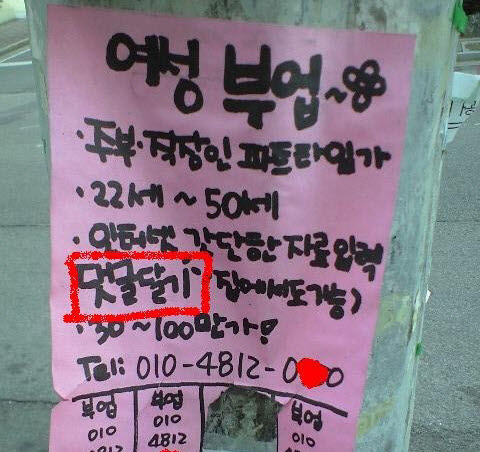 여성 부업~
· 주부·직장인 파트타임가
· 22세 ~ 50세
· 인터넷 간단한 자료입력
댓글달기 집에서도가능)
· 30~100만가!
Tel: 010-4812-0
부업
010
4812
부업
010
4812
부업
010
4812